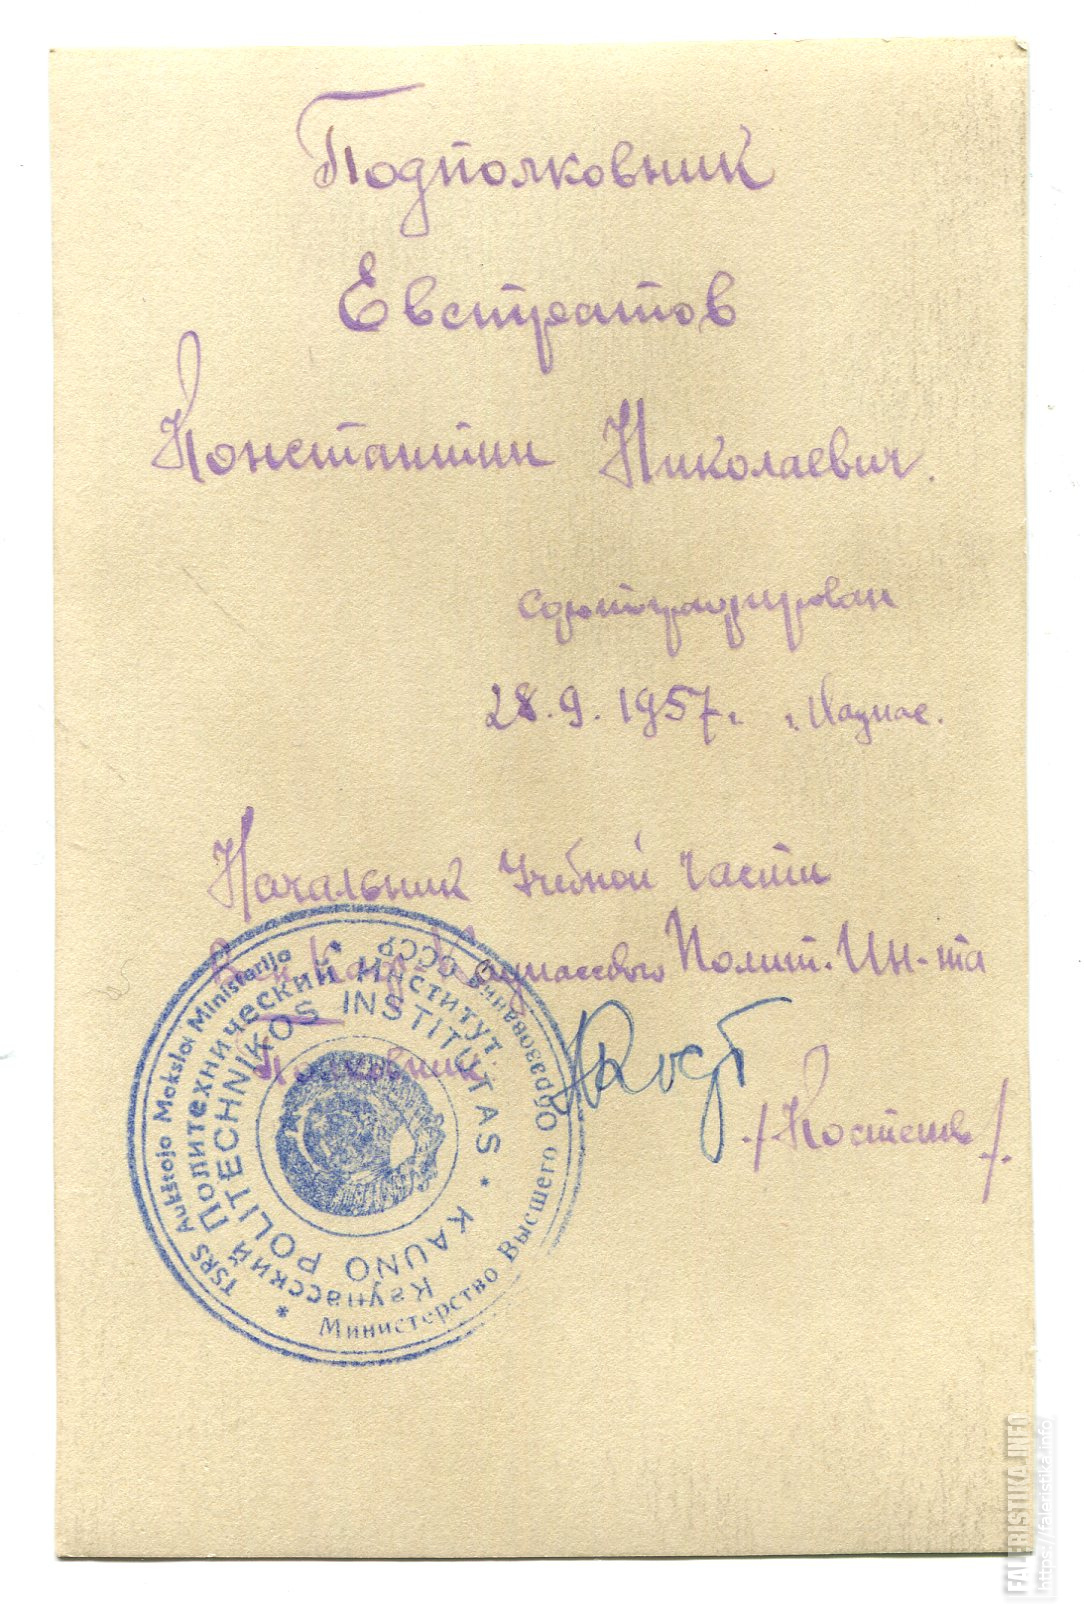 Подполковник
Евстратов
Константин Николаевич.
сфотографирован
28.9.1957г. г. Каунас.
Начальник Учебной части
Воен Каф. Каунасского Полит. Ин-та
Полковник
/Костенев/
TSRS Aukštojo Mokslo Ministerija
Министерство Высшего Образования СССР
Каунасский Политехнический Институт
KAUNO POLITECHNIKOS INSTITUTAS
FALERISTIKA.INFO
https://faleristika.info